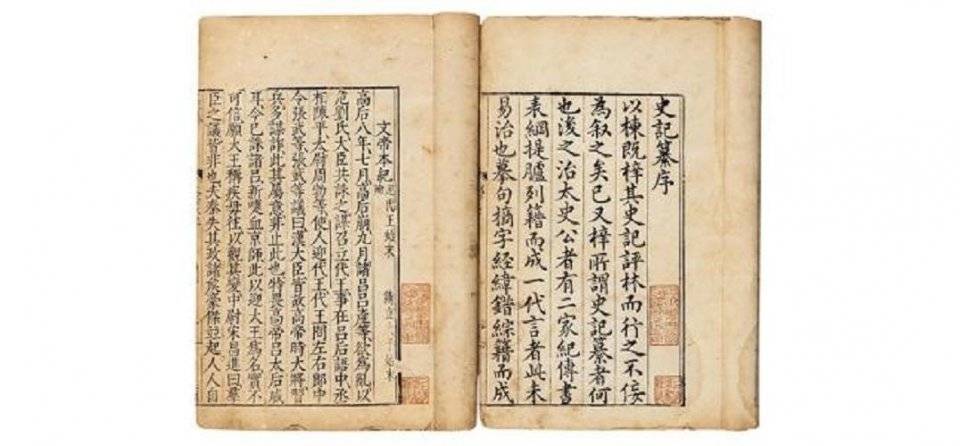 史記纂序
以棟既梓其史記評林而行之不佞
為叙之矣已又梓所謂史記纂者何
也淩之治太史公者有二家紀傳書
表綱提臚列籍而成一代言者此未
易治也摹句摘字經緯錯綜籍而成
文帝本紀
高后八年七月高后崩九月諸呂呂產等欲爲亂以
危劉氏大臣共誅之謀召立代王事在呂后語中丞
相陳平太尉周勃等使人迎代王代王問左右郎中
令張武等張武等議曰漢大臣皆故高帝時大將習
兵多謀詐此其屬意非止此也特畏高帝呂太后威
耳今已誅諸呂新喋血京師此以迎大王爲名實不
可信願大王稱疾毋往以觀其變中尉宋昌進曰羣
臣之議皆非也夫秦失其政諸侯豪傑竝起人人自